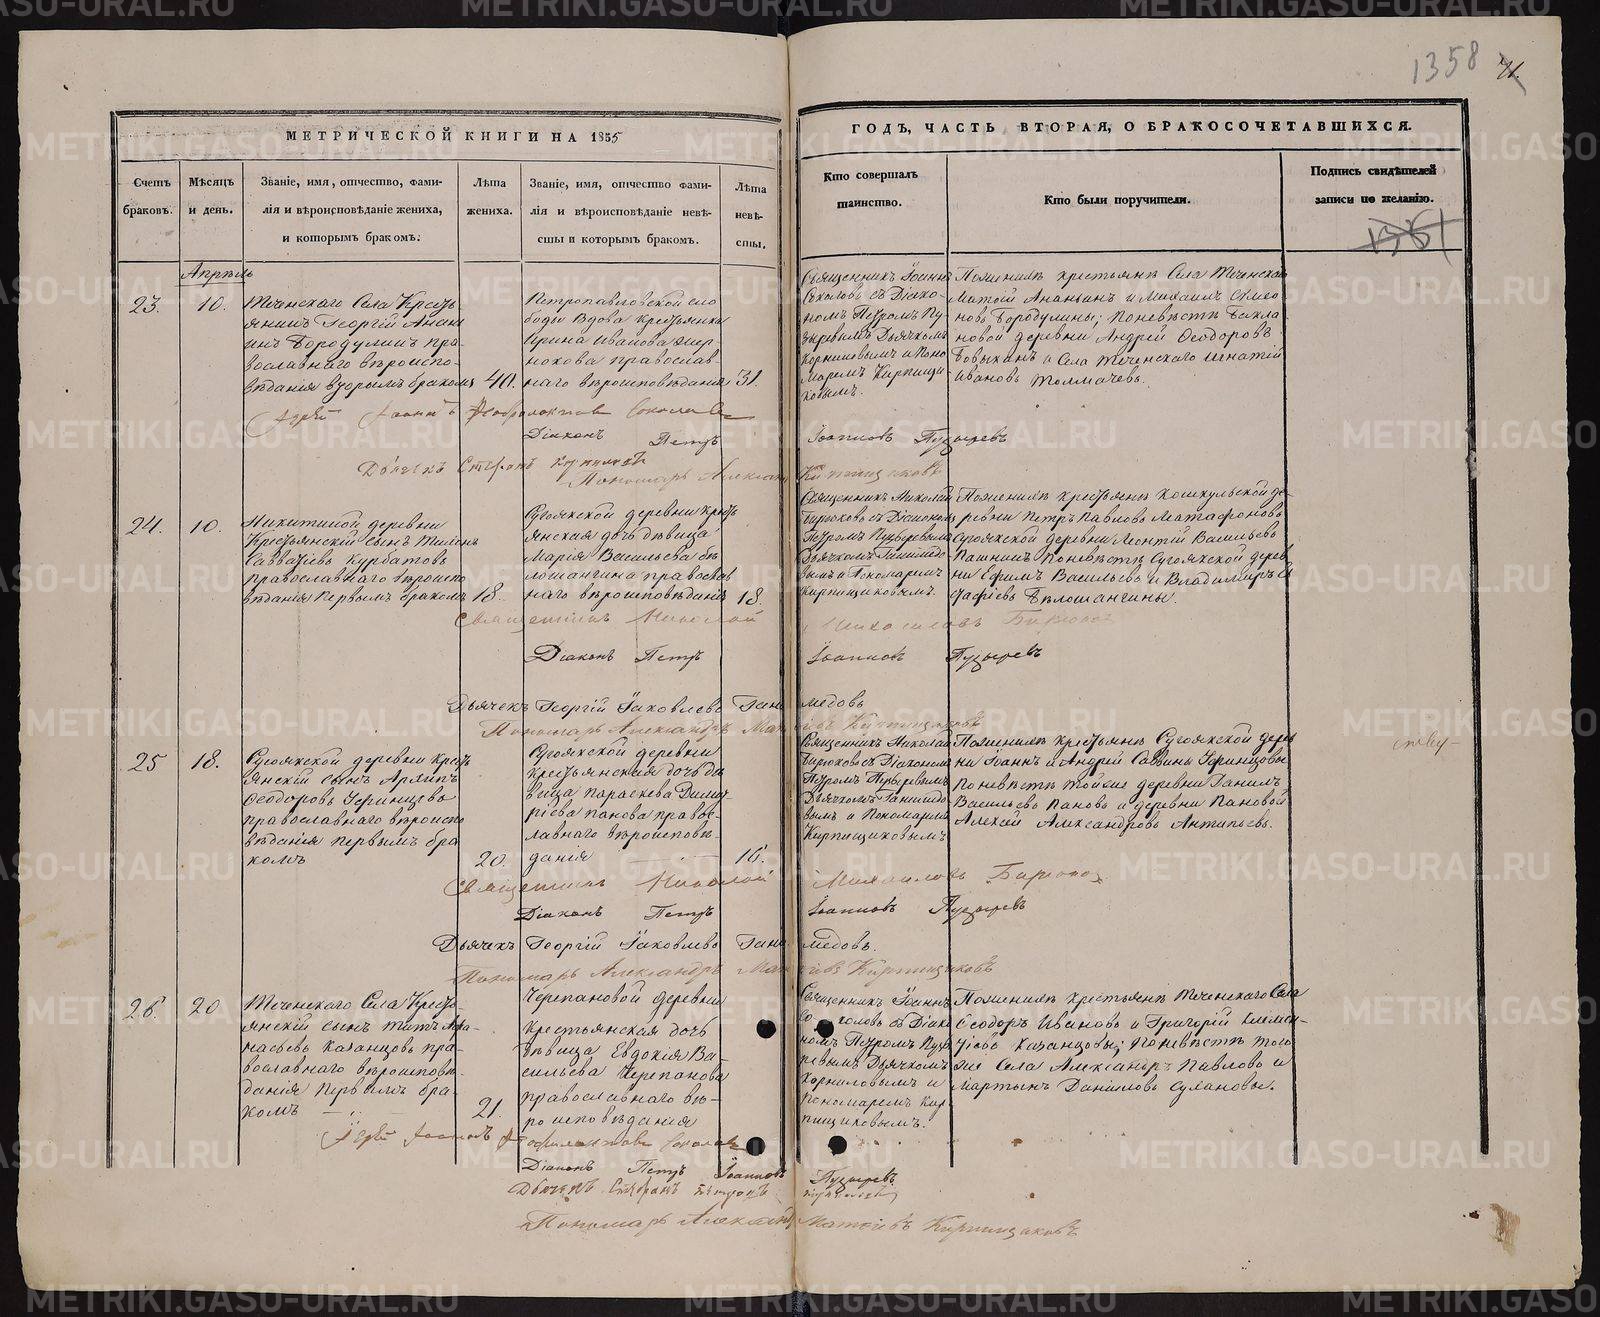 1358
71.
МЕТРИЧЕСКОЙ КНИГИ НА 1855
ГОДЪ, ЧАСТЬ ВТОРАЯ, О БРАКОСОЧЕТАВШИХСЯ.
Счетъ браковъ.
Мѣсяцъ и день.
Званіе, имя, отчество, фами-
лія и вѣроисповѣданіе жениха,
и которымъ бракомъ.
Лѣта
жениха.
Званіе, имя, отчество фами-
лія и вѣроисповѣданіе невѣ-
сты и которымъ бракомъ.
Лѣта
невѣ-
сты.
Кто совершалъ
таинство.
Кто были поручители.
Подпись свидѣтелей
записи по желанію.
1361
Апрѣль
23.
10.
Теченскаго Села Кресть
янинъ Георгій Анань
инъ Бородулинъ пра-
вославнаго вѣроиспо-
вѣданія вторымъ бракомъ
40.
Петропавловской сло
боды Вдова Крестьянка
Ирина Иванова
православ
наго вѣроисповѣданія
31.
Священникъ Іоаннъ
Соколовъ съ Діако-
номъ Петромъ Пу-
зыревымъ Дьячкомъ
Корниловымъ и Поно
маремъ Кирпищи
ковымъ.
По женихѣ крестьяне Села Теченскаго
Матвій Ананьинъ и Михаилъ Симео
новъ Бородулины; по невѣстѣ Бакла
новой деревни Андрей Ѳеодоровъ
Бовыкинъ и Села Теченскаго Игнатій
Ивановъ Толмачевъ.
Іерей Іоаннъ Феофилактовъ Соколовъ
Діаконъ Петръ Іоанновъ Пузыревъ
Дьячекъ Стефанъ Корниловъ
Пономарь Александръ Кирпищиковъ
24.
10.
Никитиной деревни
Крестьянскій сынъ
Савватіевъ Курбатовъ
православнаго вѣроиспо
вѣданія первымъ бракомъ
18.
Сугоякской деревни кресть
янская дочь дѣвица
Марія Васильева Бѣ
лошангина православ
наго вѣроисповѣданія
18.
Священникъ Николай
Бирюковъ съ Діакономъ
Петромъ Пузыревымъ
Дьячкомъ Ганимедо
вымъ и Пономаремъ
Кирпищиковымъ.
По женихѣ крестьяне Кошкульской де-
ревни Петръ Павловъ Матафоновъ
Сугоякской деревни Леонтій Васильевъ
Пашнинъ По невѣстѣ Сугоякской дерев
ни Ефимъ Васильевъ и Владиміръ Ев
Бѣлошангины.
Священникъ Николай Михаиловъ Бирюковъ
Діаконъ Петръ Іоанновъ Пузыревъ
Дьячекъ Георгій Іаковлевъ Ганимедовъ
Пономарь Александръ Матвіевъ Кирпищиковъ
25
18.
Сугоякской деревни Кресть
янскій сынъ Архипъ
Ѳеодоровъ Уфинцевъ
православнаго вѣроиспо
вѣданія первымъ бра
комъ
20
Сугоякской деревни
крестьянская дочь дѣ
вица Параскева Димит
ріева Панова правос-
лавнаго вѣроисповѣ-
данія
16.
Священникъ Николай
Бирюковъ съ Діакономъ
Петромъ Пузыревымъ
Дьячкомъ Ганимедо
вымъ и Пономаремъ
Кирпищиковымъ
По женихѣ крестьяне Сугоякской дерев
ни Іоаннъ и Андрей Саввины Уфинцовы
по невѣстѣ тойже деревни Данилъ
Васильевъ Пановъ и деревни Пановой
Алексій Александровъ Антипьевъ.
Священникъ Николай Михаиловъ Бирюковъ
Діаконъ Петръ Іоанновъ Пузыревъ
Дьячекъ Георгій Іаковлевъ Ганимедовъ.
Пономарь Александръ Матвіевъ Кирпищиковъ
26.
20
Теченскаго Села Кресть-
янскій сынъ Титъ Аѳа-
насьевъ Казанцовъ пра-
вославнаго вѣроисповѣ-
данія первымъ бра-
комъ
21.
Черепановой деревни
крестьянская дочь
дѣвица Евдокія Ва-
сильева Черепанова
православнаго вѣ-
роисповѣданія
Священникъ Іоаннъ
Соколовъ съ Діако
номъ Петромъ Пузы
ревымъ Дьячкомъ
Корниловымъ и
пономаремъ Кир-
пищиковымъ.
По женихѣ крестьяне Теченскаго Села
Ѳеодоръ Ивановъ и Григорій Климен-
тіевъ Казанцовы; По невѣстѣ того
же Села Александръ Павловъ и
Мартынъ Даниловъ Сулановы.
Іерей Іоаннъ Феофилактовъ Соколовъ
Діаконъ Петръ Іоанновъ Пузыревъ
Дьячекъ Стефанъ Петровъ Корниловъ
Пономарь Александръ Матвіевъ Кирпищиковъ
METRIKI.GASO-URAL.RU